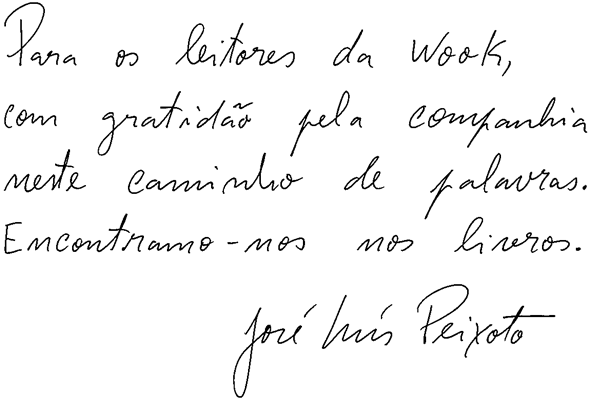 Para os leitores da Wook,
com gratidão pela companhia
neste caminho de palavras.
Encontramo-nos nos livros.
José Luís Peixoto